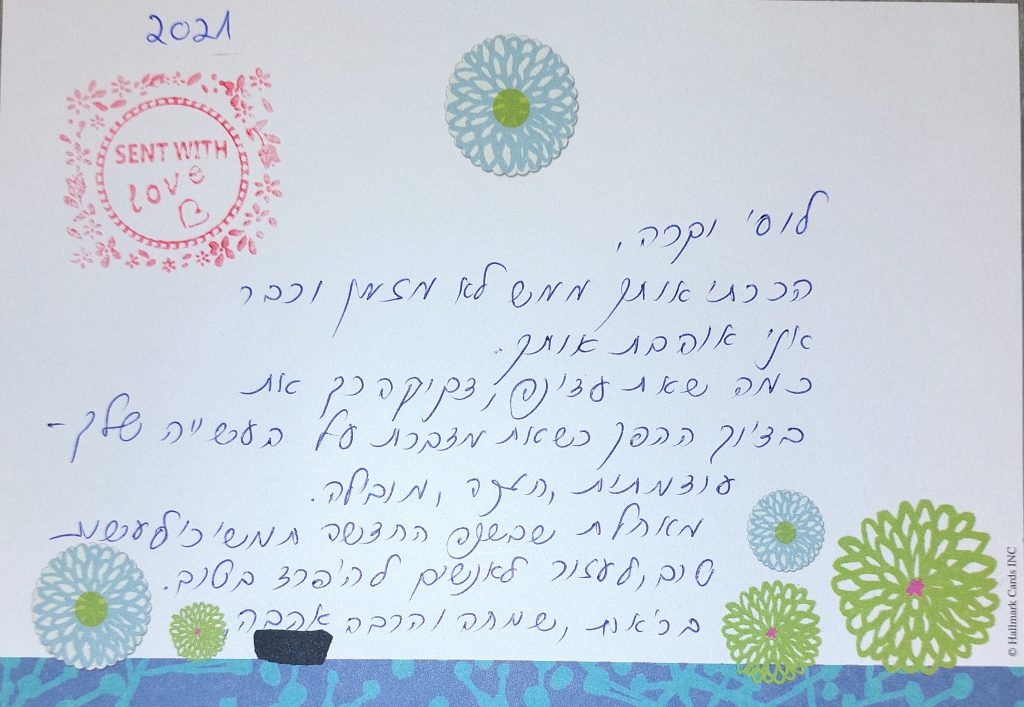 2021
SENT WITH
love
לוסי יקרה,
הכרתי אותך ממש לא מזמן וכבר
אני אוהבת אותך.
כמה שאת עדינה, דקיקה כך את
בדיוק ההפך כשאת מדברת על העשייה שלך -
עוצמתית, חזקה, מובילה.
מאחלת שבשנה החדשה תמשיכי לעשות
טוב, לעזור לאנשים להיפרד בטוב.
בריאות, שמחה והרבה אהבה
© Hallmark Cards INC